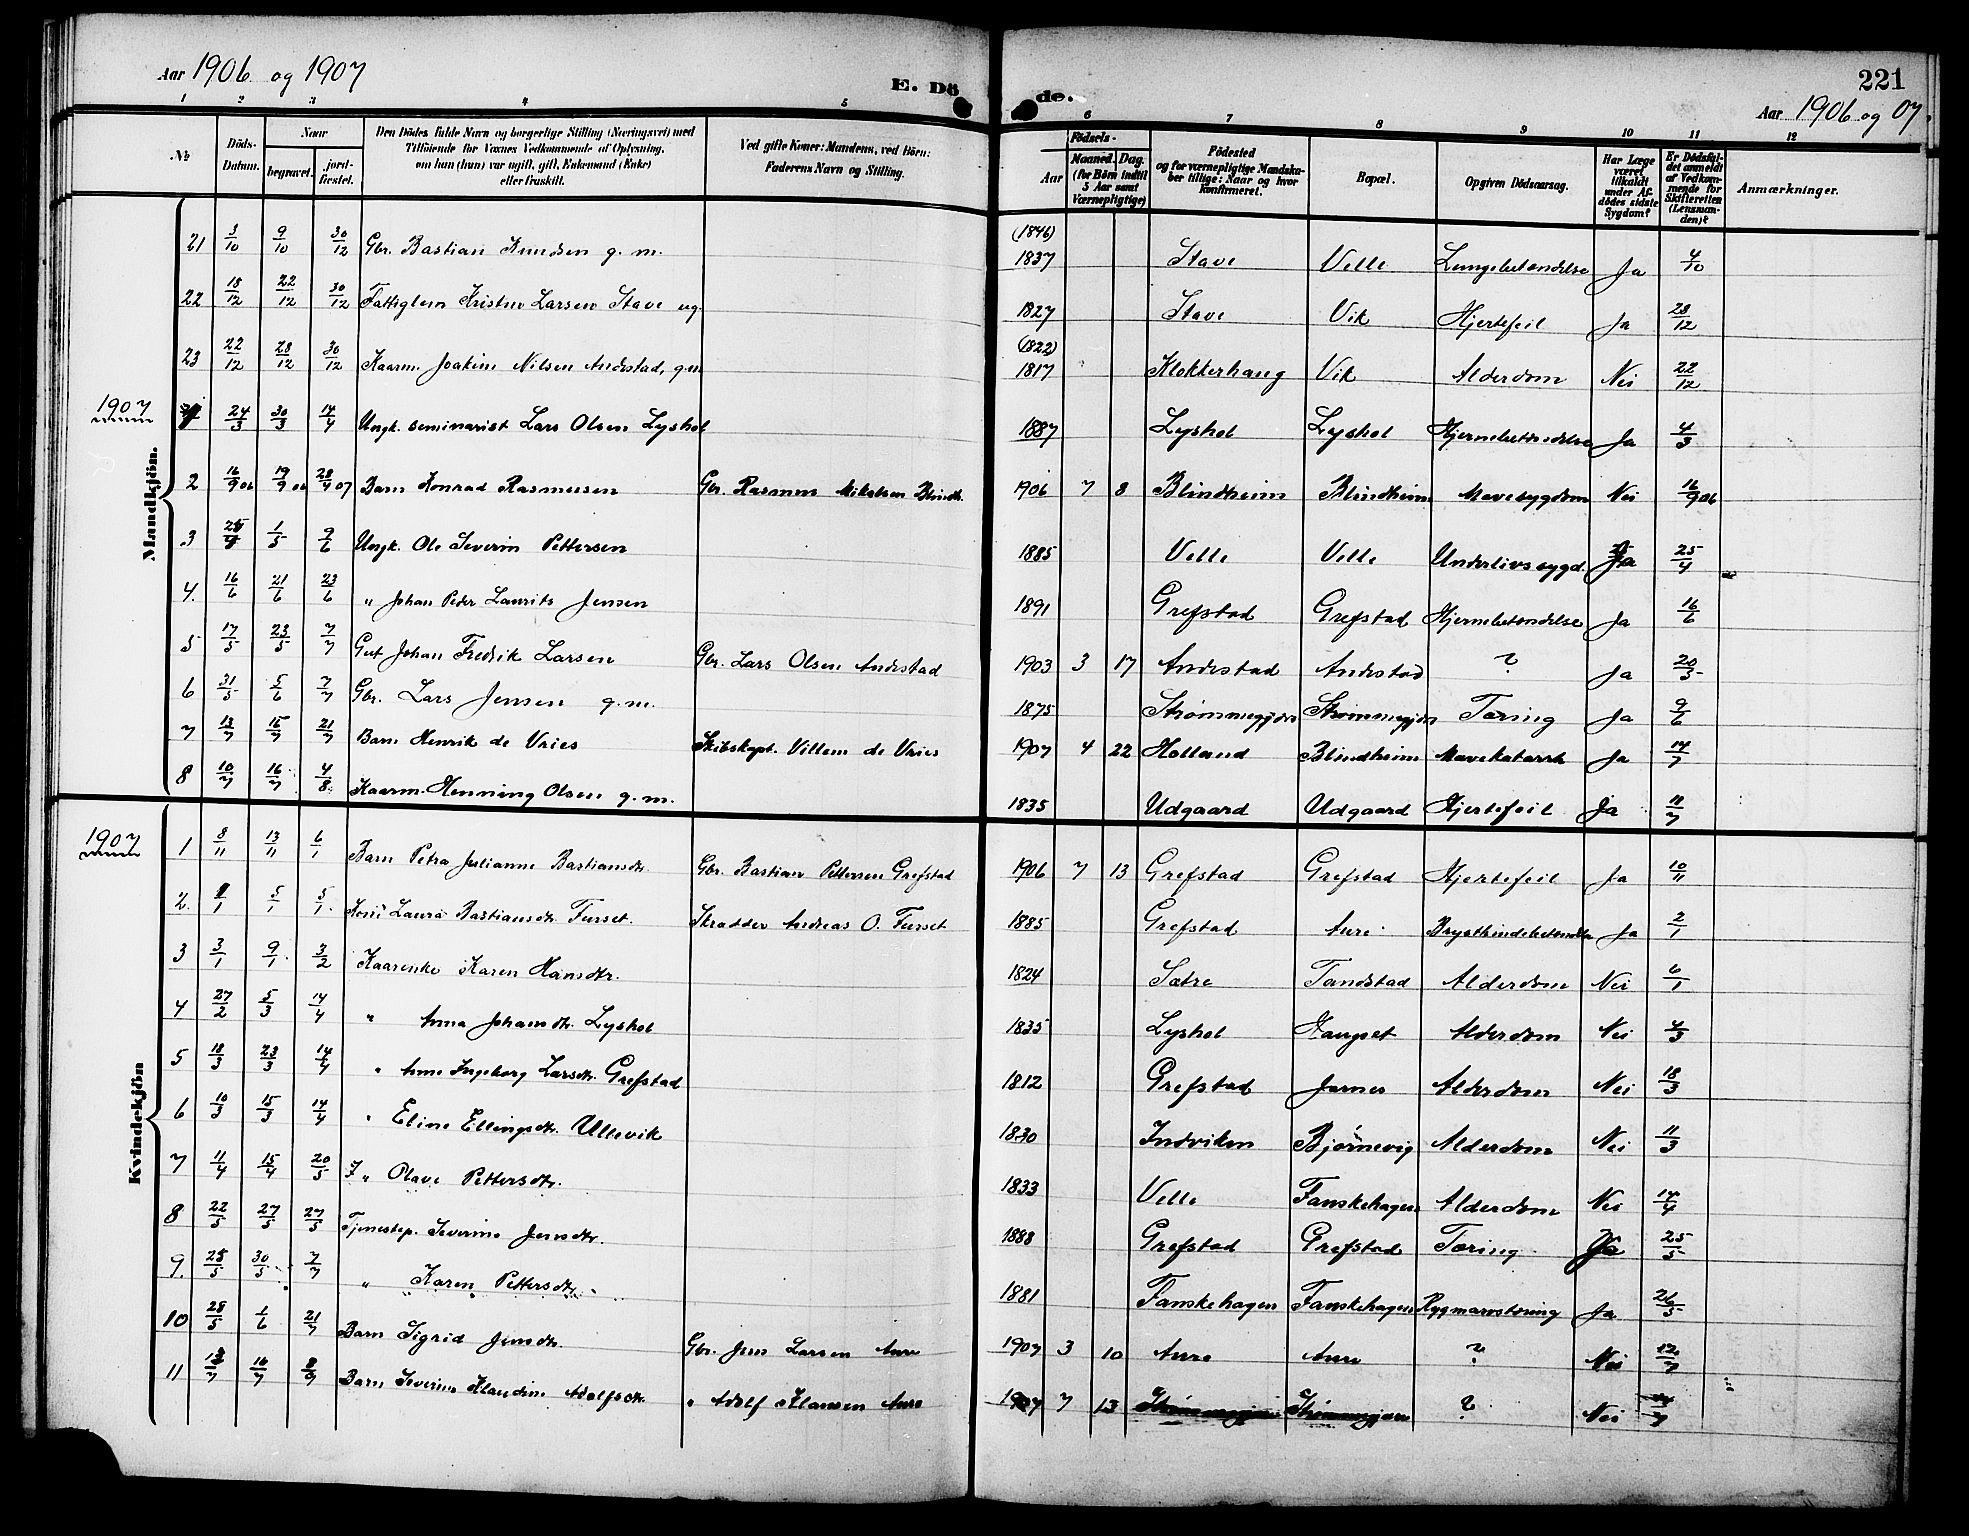 Aar 1906 og 1907
E. Dö de.
221
Aar 1906 og 07.
1 2 3 4 5 6 7 8 9 10 11 12
No
Döds-Datum.
Naar
begravet.
jord-fæstet.
Den Dödes fulde Navn og borgerlige Stilling (Næringsvei) med Tilföiende for Voxnes Vedkommende af Oplysning, om han (hun) var ugift, gift, Enkemand (Enke) eller fraskilt.
Ved gifte Koner: Mandens, ved Börn: Faderens Navn og Stilling.
Födsels-
Aar
Maaned. Dag.
(for Börn indtil 5 Aar samt Værnepligtige)
Födested og for værnepligtige Mandskaber tillige: Naar og hvor konfirmeret.
Bopæl.
Opgiven Dödsaarsag.
Har Læge været tilkaldt under Afdödes sidste Sygdom?
Er Dödsfaldet anmeldt af Vedkommende for Skifteretten (Lensmanden)?
Anmærkninger.
Mandkjön.
21 3/10 9/10 30/12 Gbr. Bastian Knudsen g. m. (1846) 1837 Stave Velle Lungebetændelse Ja 4/10
22 18/12 22/12 30/12 Fattiglem Kristen Larsen Stave ug. 1827 Stave Vik Hjertefeil Ja 28/12
23 22/12 28/12 30/12 Kaarm. Joakim Nilsen Andestad, g.m (1822) 1817 Klokkerhaug Vik Alderdom Nei 22/12
1907
24/3 30/3 14/4 Ungk. seminarist Lars Olsen Lyshol 1887 Lyshol Lyshol Hjernebetændelse Ja 4/3
2 16/9 06 19/9 06 28/4 07 Barn Konrad Rasmussen Gbr. Rasmus Mikalsen Blindh. 1906 7 8 Blindheim Blindheim Mavesygdom Nei 16/9 06
3 1/5 9/6 Ungk. Ole Severin Pettersen 1885 Velle Velle Underlivssygd. Ja 25/4
4. 16/6 21/6 23/6 " Johan Peder Laurits Jensen 1891 Grefstad Grefstad Hjernebetændelse Ja 16/6
5 17/5 23/5 7/7 Gut Johan Fredrik Larsen Gbr. Lars Olsen Andestad 1903 3 17 Andestad Andestad ? Ja 20/5
6 31/5 5/6 7/7 Gbr. Lars Jensen g.m. 1875 Strømmegjær Strømmegjær Tæring Ja 9/6
7 13/7 15/7 21/7 Barn Henrik de Vries Skibskapt. Villem de Vries 1907 4 22 Holland Blindheim Mavekatarrh Ja 14/7
8 10/7 16/7 4/8 Kaarm. Henning Olsen g.m. 1835 Udgaard Udgaard Hjertefeil Ja 11/7
1907
Kvindekjön
1 8/11 13/11 6/1 Barn Petra Julianne Bastiansdtr. Gbr. Bastian Pettersen Grefstad 1906 7 13 Grefstad Grefstad Hjertefeil Ja 10/11
2. 1/1 5/1 5/1 Kone Laura Bastiansdtr. Furset. Skrædder Andreas O. Furset 1885 Grefstad Aure Brysthindebetændelse Ja 2/1
3 3/1 9/1 3/2 Kaarenke Karen Hansdtr. 1824 Sætre Tandstad Alderdom Nei 6/1
4 27/2 5/3 14/4 " Anna Johansdtr. Lyshol 1835 Lyshol Haugset Alderdom Nei 4/3
5 18/3 23/3 14/4 " Anne Ingeborg Larsdtr. Grefstad 1812 Grefstad Jarnes Alderdom Nei 18/3
6 10/3 15/3 14/4 " Eline Ellingsdtr. Ullevik 1830 Indviken Bjørnevig Alderdom Nei 11/3
7 11/4 15/4 20/5 F " Olave Pettersdtr. 1833 Velle Fauskehagen Alderdom Nei 14/4
8 22/5 27/5 27/5 Tjenestep. Severine Jensdtr. 1888 Grefstad Grefstad Tæring Ja 25/5
9. 25/5 30/5 7/7 " Karen Pettersdtr. 1881 Fauskehagen Fauskehagen Rygmarvstæring Ja 26/5
10 28/5 1/6 21/7 Barn Sigrid Jensdtr. Gbr. Jens Larsen Aure 1907 3 10 Aure Aure ? Nei 12/7
11 16/7 Barn Severine Klaudine Adolfsdtr. " Adolf Klausen Aure 1907 7 13 Strømmegjær Strømmegjær ? Nei